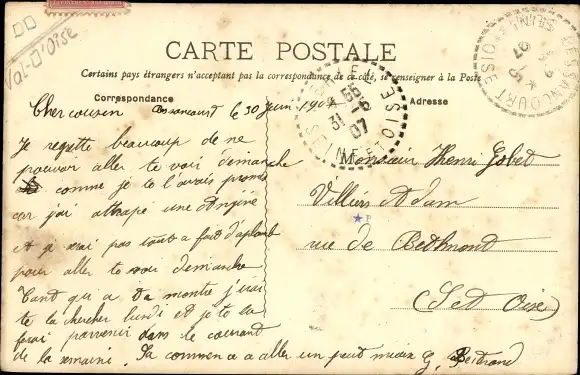 Val-D'Oise
CARTE POSTALE
Certains pays étrangers n'acceptent pas la correspondance de ce côté, se renseigner à la Poste
Correspondance
Adresse
BESSANCOURT
SEINE ET OISE
07
Cher cousin Bessancourt le 30 Juin 190
Je regrette beaucoup de ne
pouvoir aller te voir demanche
comme je te l'avais promi
car j'ai attrapé une Angine
et je pas tout a fait d'aplomb
pour aller te voir demanche
Tant qu a ta montre j'irai
te la chercher lundi et je te la
ferai parvenir dans le courant
de la semaine. Sa commence a aller un peut mieux G. Bertrand
Monsieur Henri Gobet
Villiers Adam
rue de Bethmont
(S et Oise)